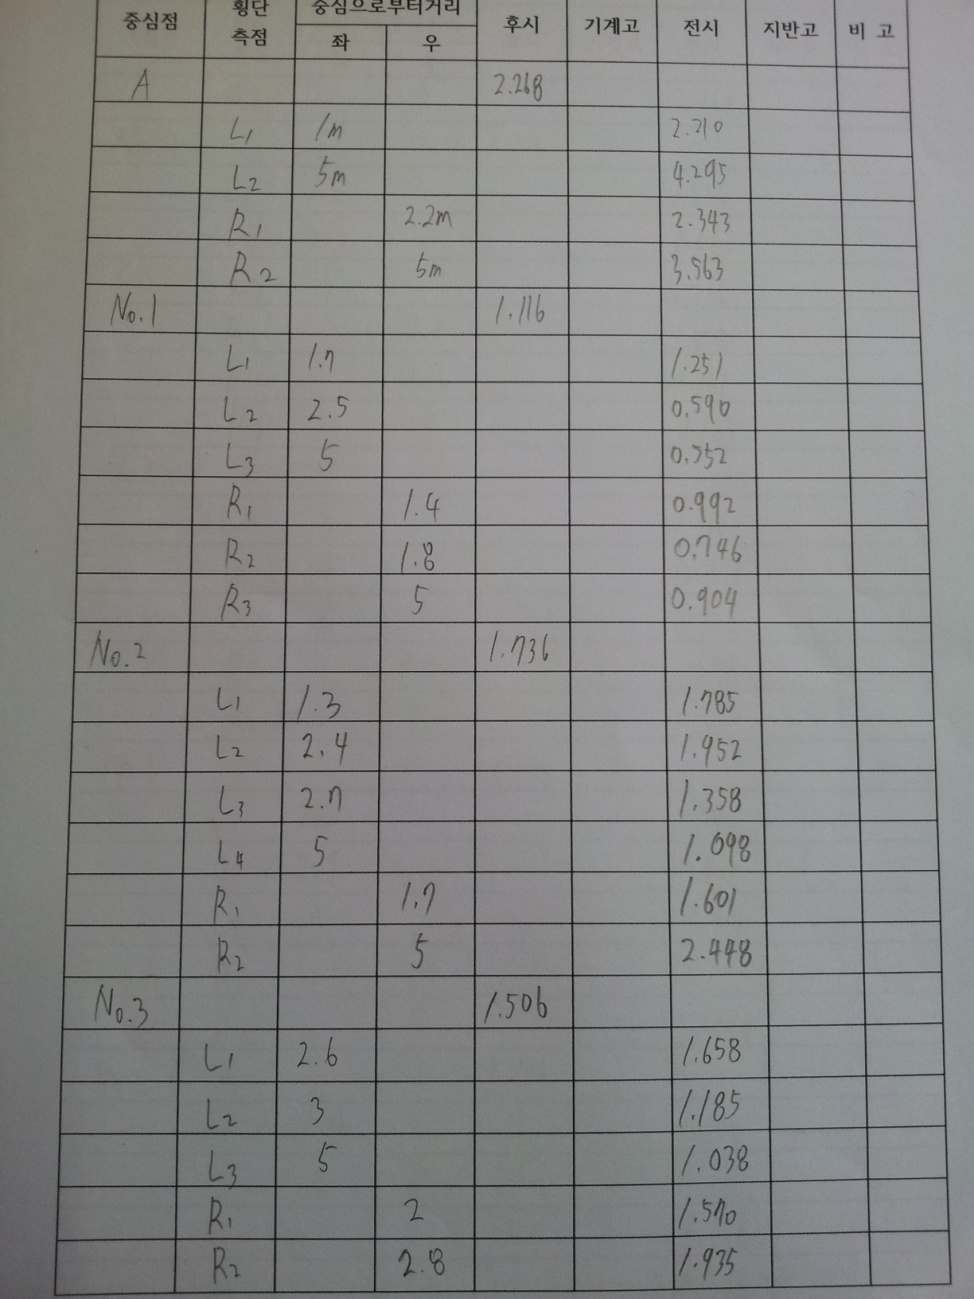 중심점 횡단 측점 중심으로부터거리 좌 우 후시 기계고 전시 지반고 비 고
A 2.268
L1 1m 2.210
L2 5m 4.295
R1 2.2m 2.343
R2 5m 3.563
No.1 1.116
L1 1.7 1.251
L2 2.5 0.590
L3 5 0.552
R1 1.4 0.992
R2 1.8 0.746
R3 5 0.904
No.2 1.736
L1 1.3 1.785
L2 2.4 1.952
L3 2.7 1.358
L4 5 1.098
R1 1.7 1.601
R2 5 2.448
No.3 1.506
L1 2.6 1.658
L2 3 1.185
L3 5 1.038
R1 2 1.570
R2 2.8 1.935